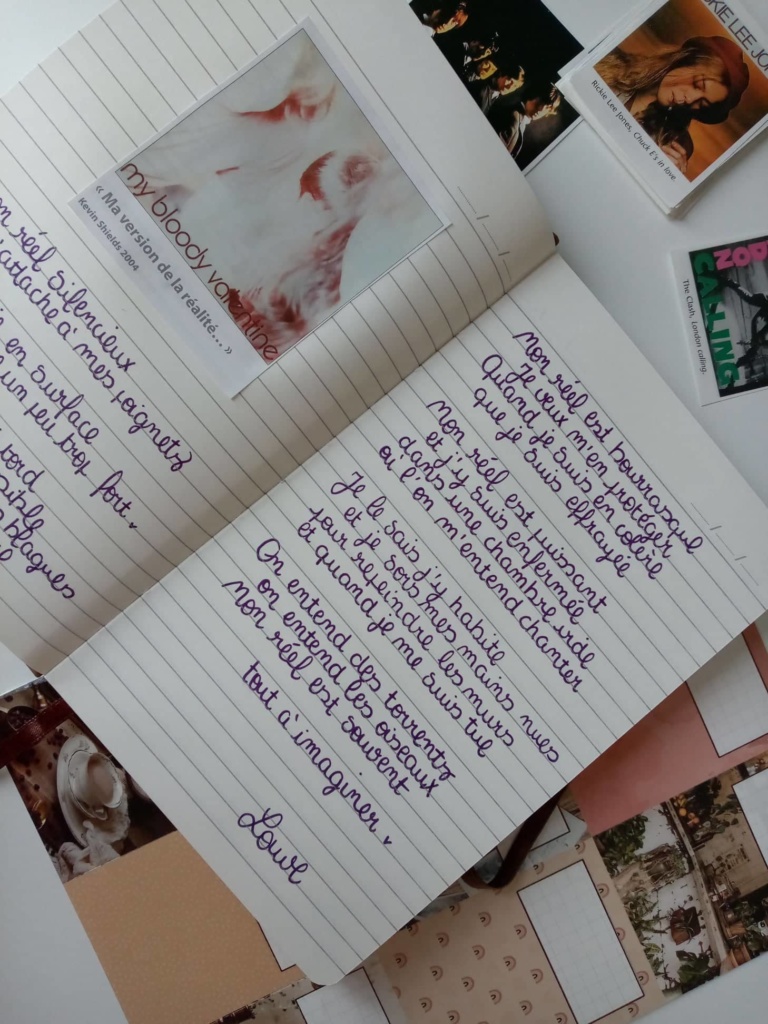 my bloody valentine
« Ma version de la réalité... »
Kevin Shields 2004
réel silencieux
'attache à mes poignets
en surface
un peu trop fort.
tord
blagues
Mon réel est bourrasque
Je veux m'en protéger
Quand je suis en colère
que je suis effrayée
Mon réel est puissant
et j'y suis enfermée
dans une chambre vide
où l'on m'entend chanter
Je le sais j'y habite
et je sors mes mains nues
pour repeindre les murs
et quand je me suis tue
On entend des torrents
on entend les oiseaux
Mon réel est souvent
tout à imaginer.
Louve
KIE LEE JO
Rickie Lee Jones, Chuck E's in love.
CALLING
The Clash, London calling.